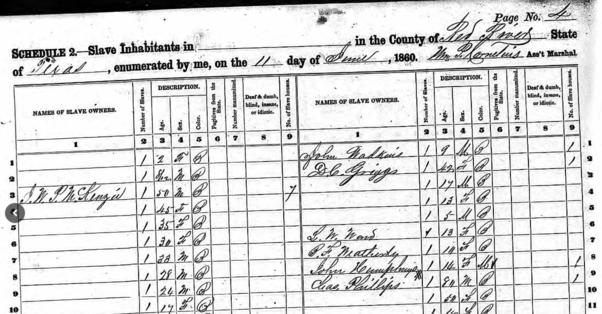 Page No. 4
SCHEDULE 2.—Slave Inhabitants in in the County of Red River State
of Texas, enumerated by me, on the 11 day of June, 1860. Wm Ass't Marshal.
NAMES OF SLAVE OWNERS.
Number of Slaves.
DESCRIPTION.
Age.
Sex.
Color.
Fugitives from the State.
Number manumitted.
Deaf & dumb, blind, insane, or idiotic.
No. of Slave houses.
1 2 3 4 5 6 7 8 9
1 1 2 F
2 1 M
3 J. W. P. McKenzie 1 50 M 7
4 1 45 F
5 1 35 F
6 1 30 F
7 1 33 M
8 1 28 M
9 1 24 M
10 1 17 F
NAMES OF SLAVE OWNERS.
Number of Slaves.
DESCRIPTION.
Age.
Sex.
Color.
Fugitives from the State.
Number manumitted.
Deaf & dumb, blind, insane, or idiotic.
No. of slave houses.
1 2 3 4 5 6 7 8 9
John Watkins 1 9 M 1 1
D. C. Griggs 1 42 F 1 2
1 17 M 3
1 13 F 4
1 5 M 5
L. W. Ward 1 13 F 6
P. F. 1 10 F 7
John 1 14 F M 1 8
Chas Phillips 1 20 M 1 9
1 F 10